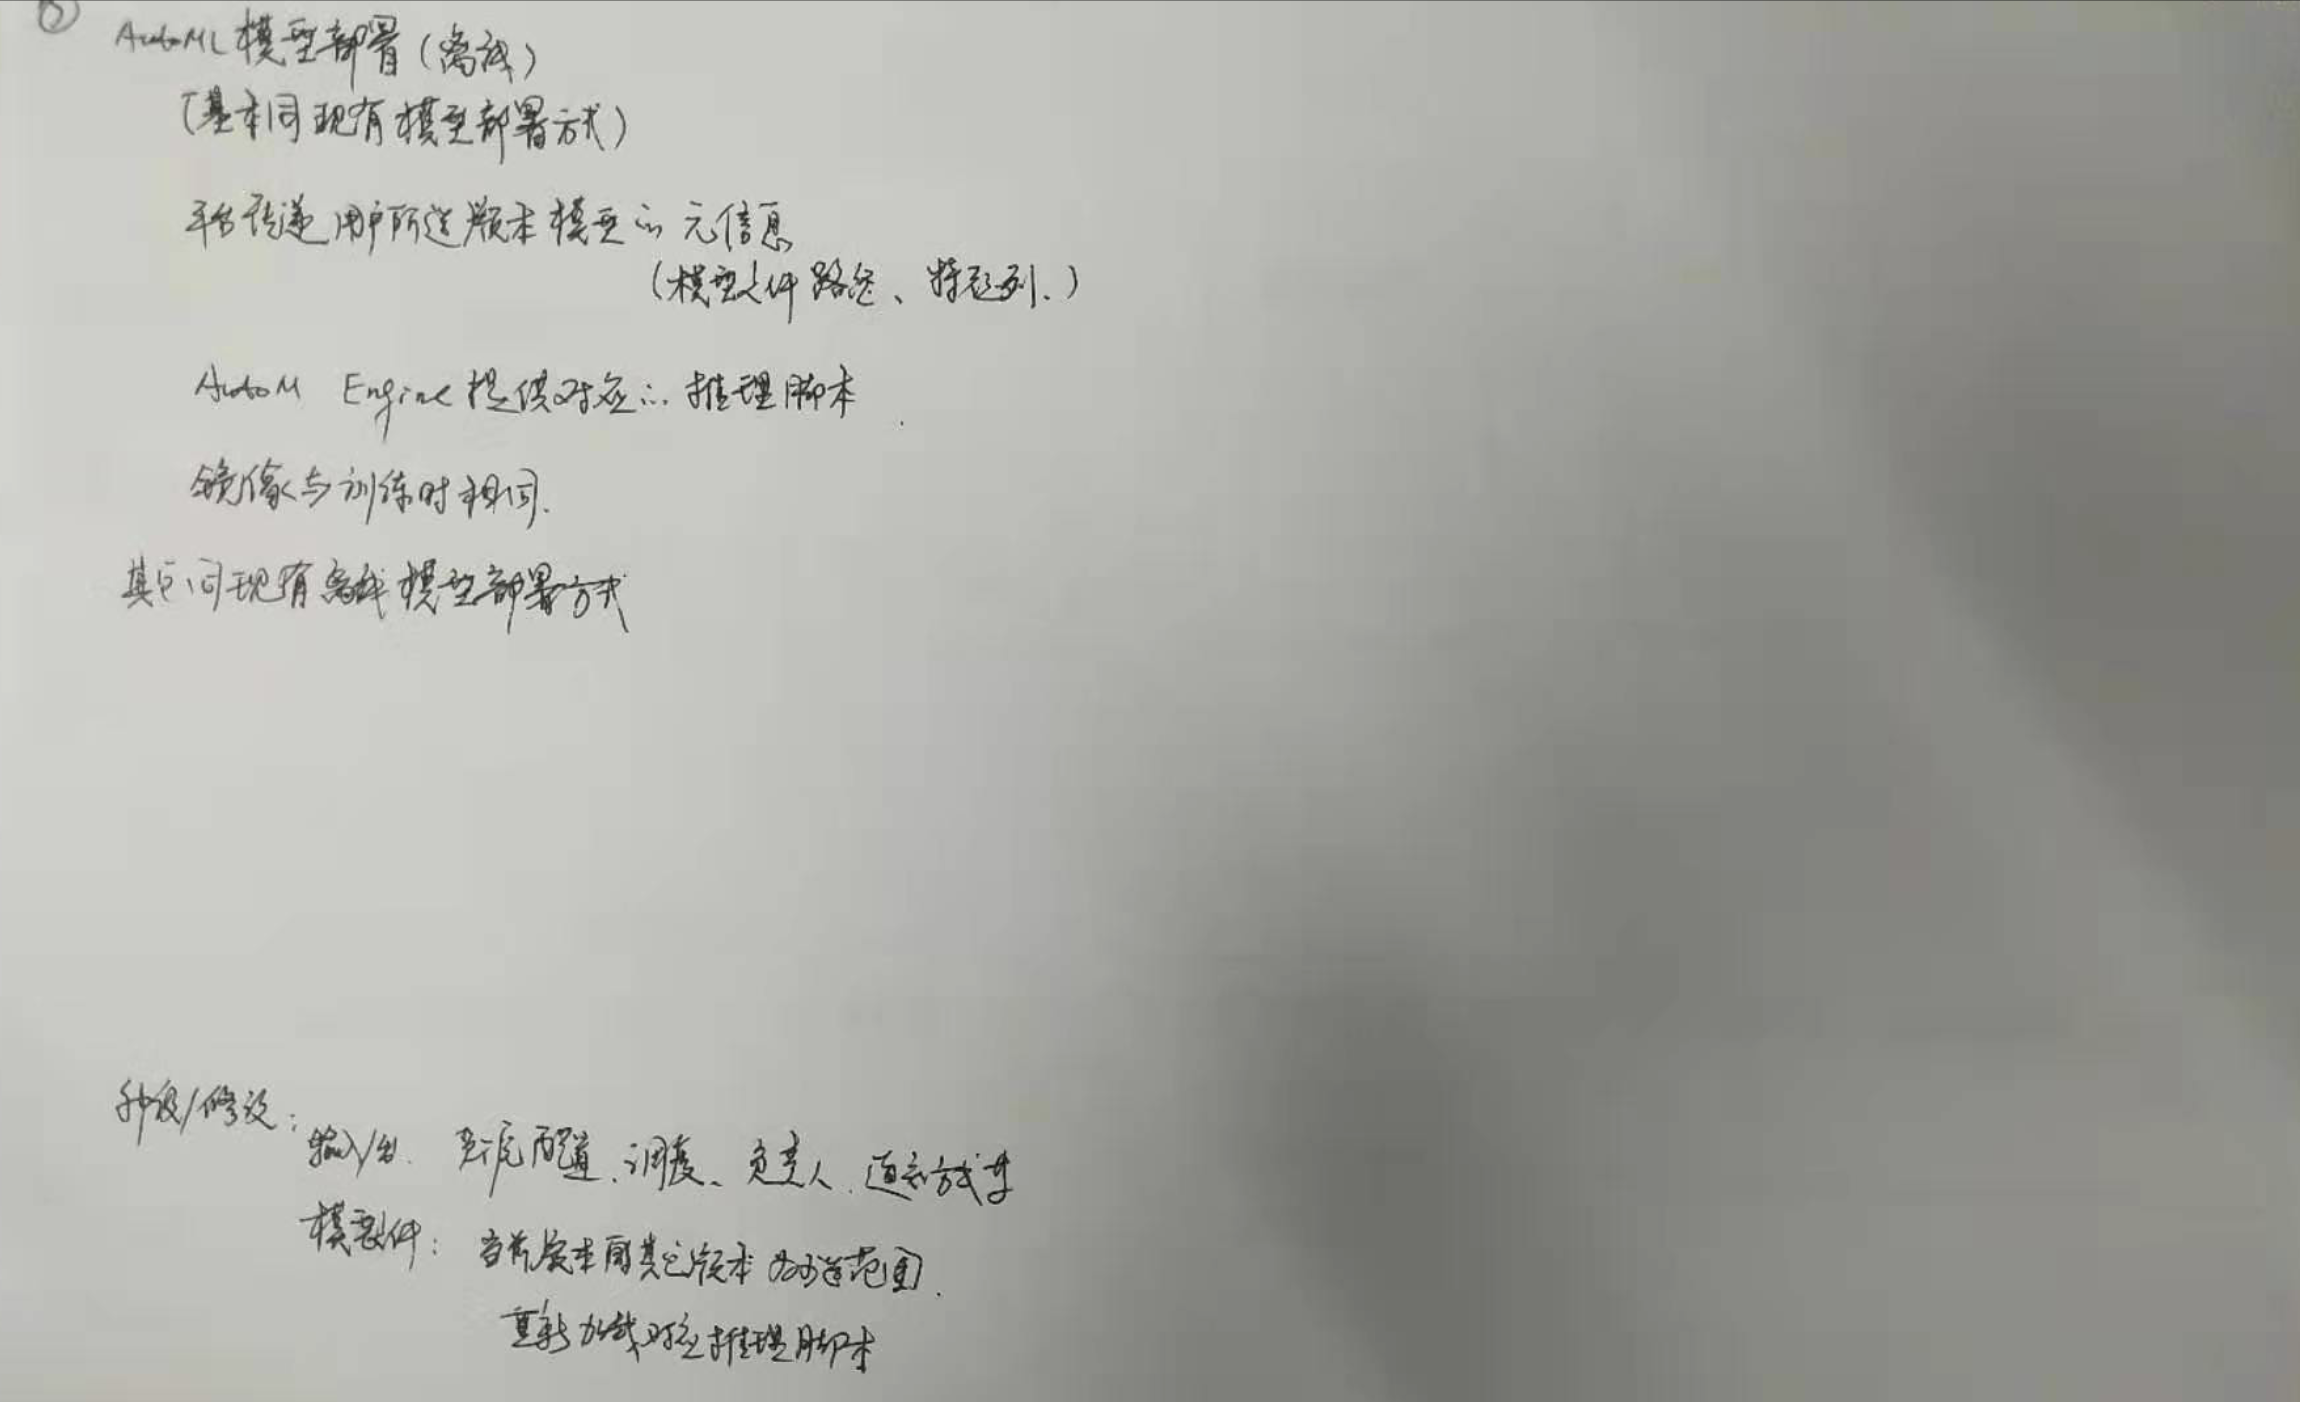 AutoML 模型部署(离线)
(基本同现有模型部署方式)
平台传递用户所选版本模型的元信息
(模型文件路径、特征列、)
AutoM Engine 提供对应的推理脚本
镜像与训练时相同.
其它同现有离线模型部署方式
升级/修改:
输入/出. 配置、调度、负责人、通知方式等
模型文件: 当前版本同其它版本 可选范围.
重新加载对应推理脚本